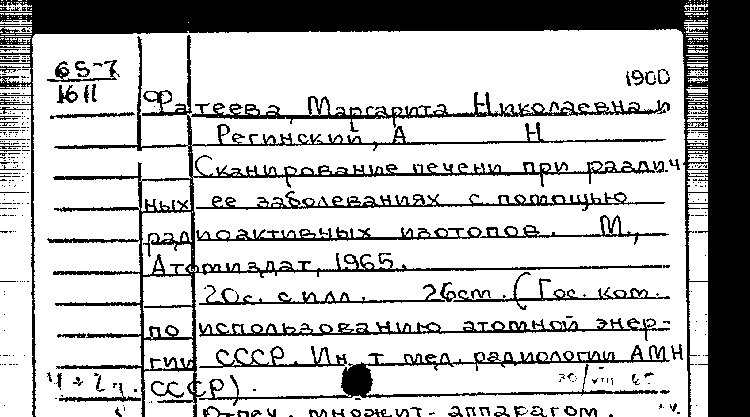 65-7
1611
1900
Фатеева, Маргарита Николаевна и
Регинский, А Н
Сканирование печени при различ-
ных ее заболеваниях с помощью
радиоактивных изотопов. М.,
Атомиздат, 1965.
20с. с илл. 26cm. (Гос. ком.
по использованию атомной энер-
гии СССР. Ин-т мед. радиологии АМН
СССР).
30/VIII 65
Отпеч. множит. аппаратом.